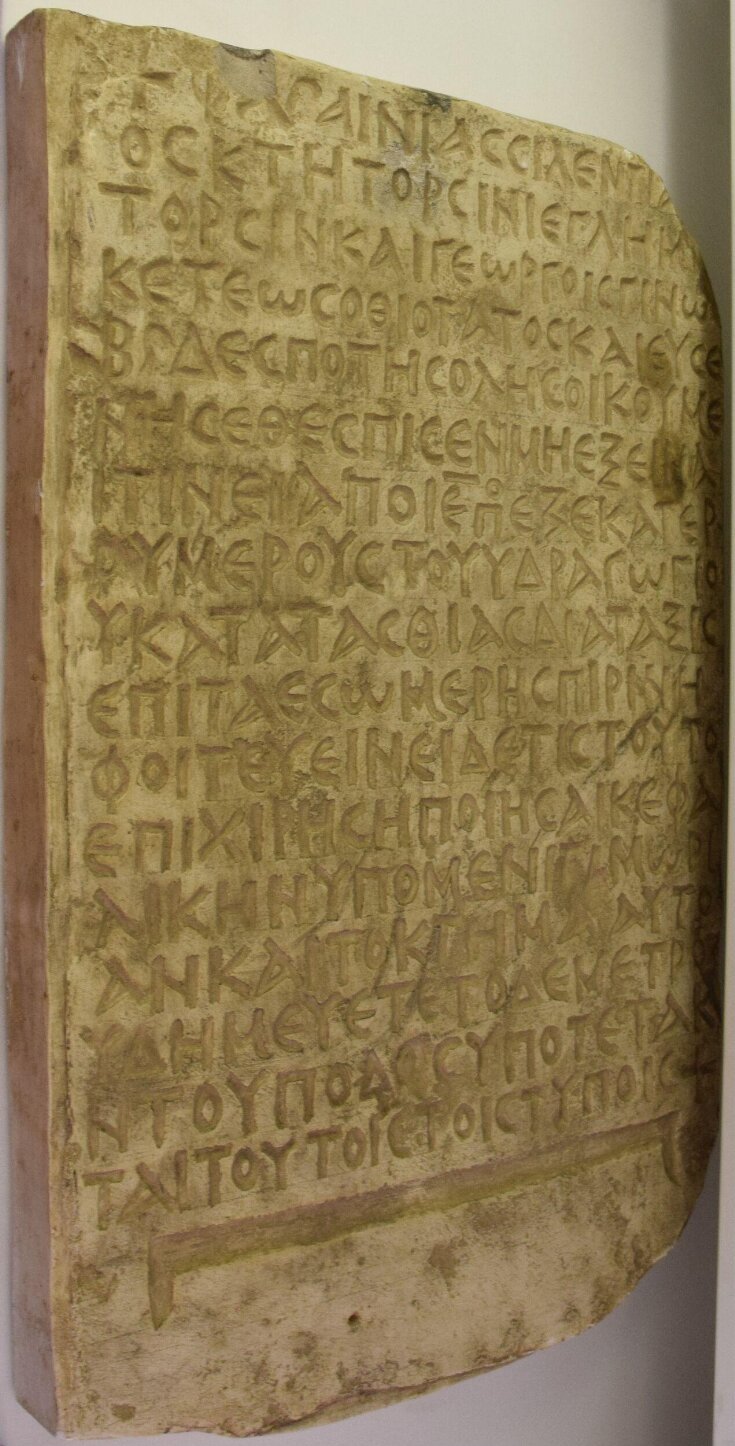 ΑΙΝΙΑCCΙΛΕΝΤΙΑ
ΟCΚΤΗΤΟΡCΙΝΙΕΓΛΗΜ
ΤΟΡCΙΝΚΑΙΓΕωΡΓΟΙCΓΙΝω
ΚΕΤΕωCΟΘΙΟΤΑΤΟCΚΑΙΕΥCΕ
ΒϚΔΕCΠΟΤΗCΟΛΗCΟΙΚΟΥΜΕ
ΝΗCΕΘΕCΠΙCΕΝΜΗΕΞΕΙΝΑ
ΙΤΙΝΕΙΑΠΟΙΕΠΕΞΕΚΑΤΕΡ
ΟΥΜΕΡΟΥCΤΟΥΥΔΡΑΓωΓΙΟ
ΥΚΑΤΑΤΑCΘΙΑCΔΙΑΤΑΞΙC
ΕΠΙΤΑΕCωΜΕΡΗCΠΙΡΙΝΗ
ΦΟΙΤΕΥΕΙΝΕΙΔΕΤΙCΤΟΥΤΟ
ΕΠΙΧΙΡΗCΗΠΟΙΗCΑΙΚΕΦΑ
ΛΙΚΗΝΥΠΟΜΕΝΙΤΙΜωΡΙ
ΑΝΚΑΙΤΟΚΤΗΜΑΑΥΤΟ
ΥΔΗΜΕΥΕΤΕΤΟΔΕΜΕΤΡΟ
ΝΤΟΥΠΟΔΟCΥΠΟΤΕΤΑΚ
ΤΑΙΤΟΥΤΟΙCΤΟΙCΤΥΠΟΙC+